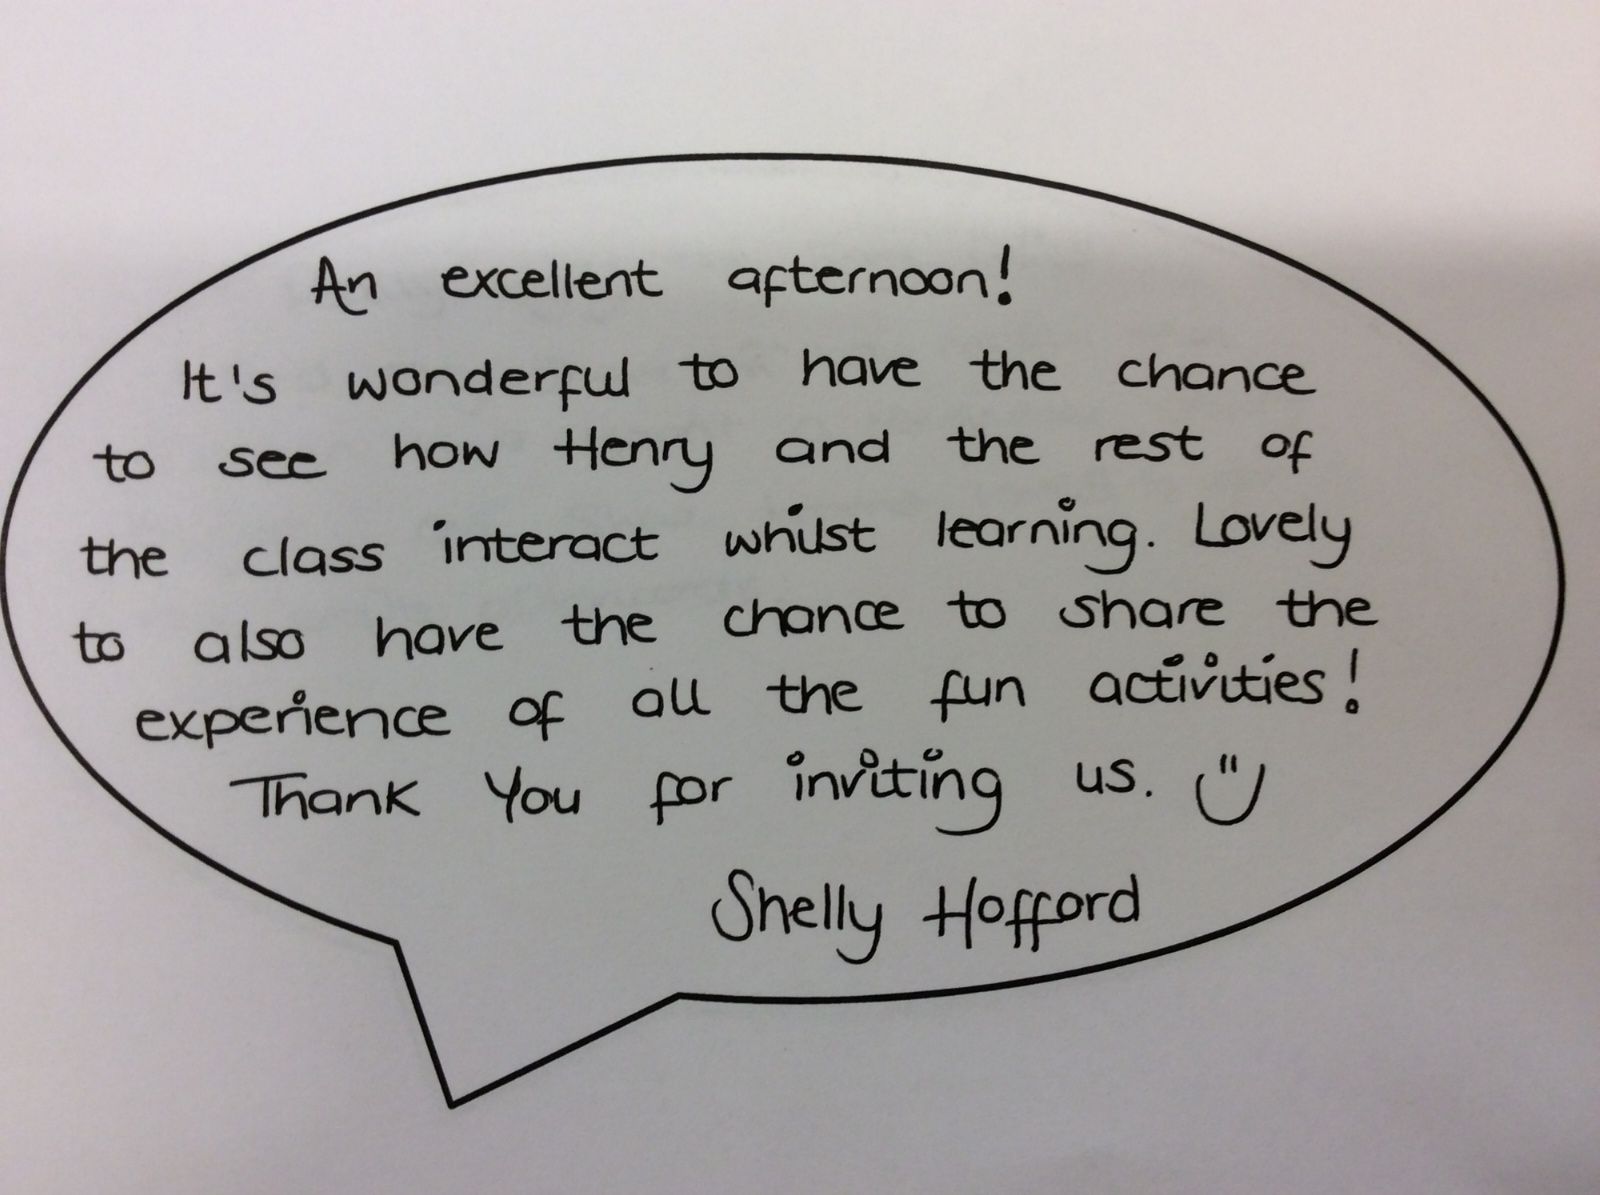 An excellent afternoon!
It's wonderful to have the chance
to see how Henry and the rest of
the class interact whilst learning. Lovely
to also have the chance to share the
experience of all the fun activities!
Thank You for inviting us.
Shelly Hofford